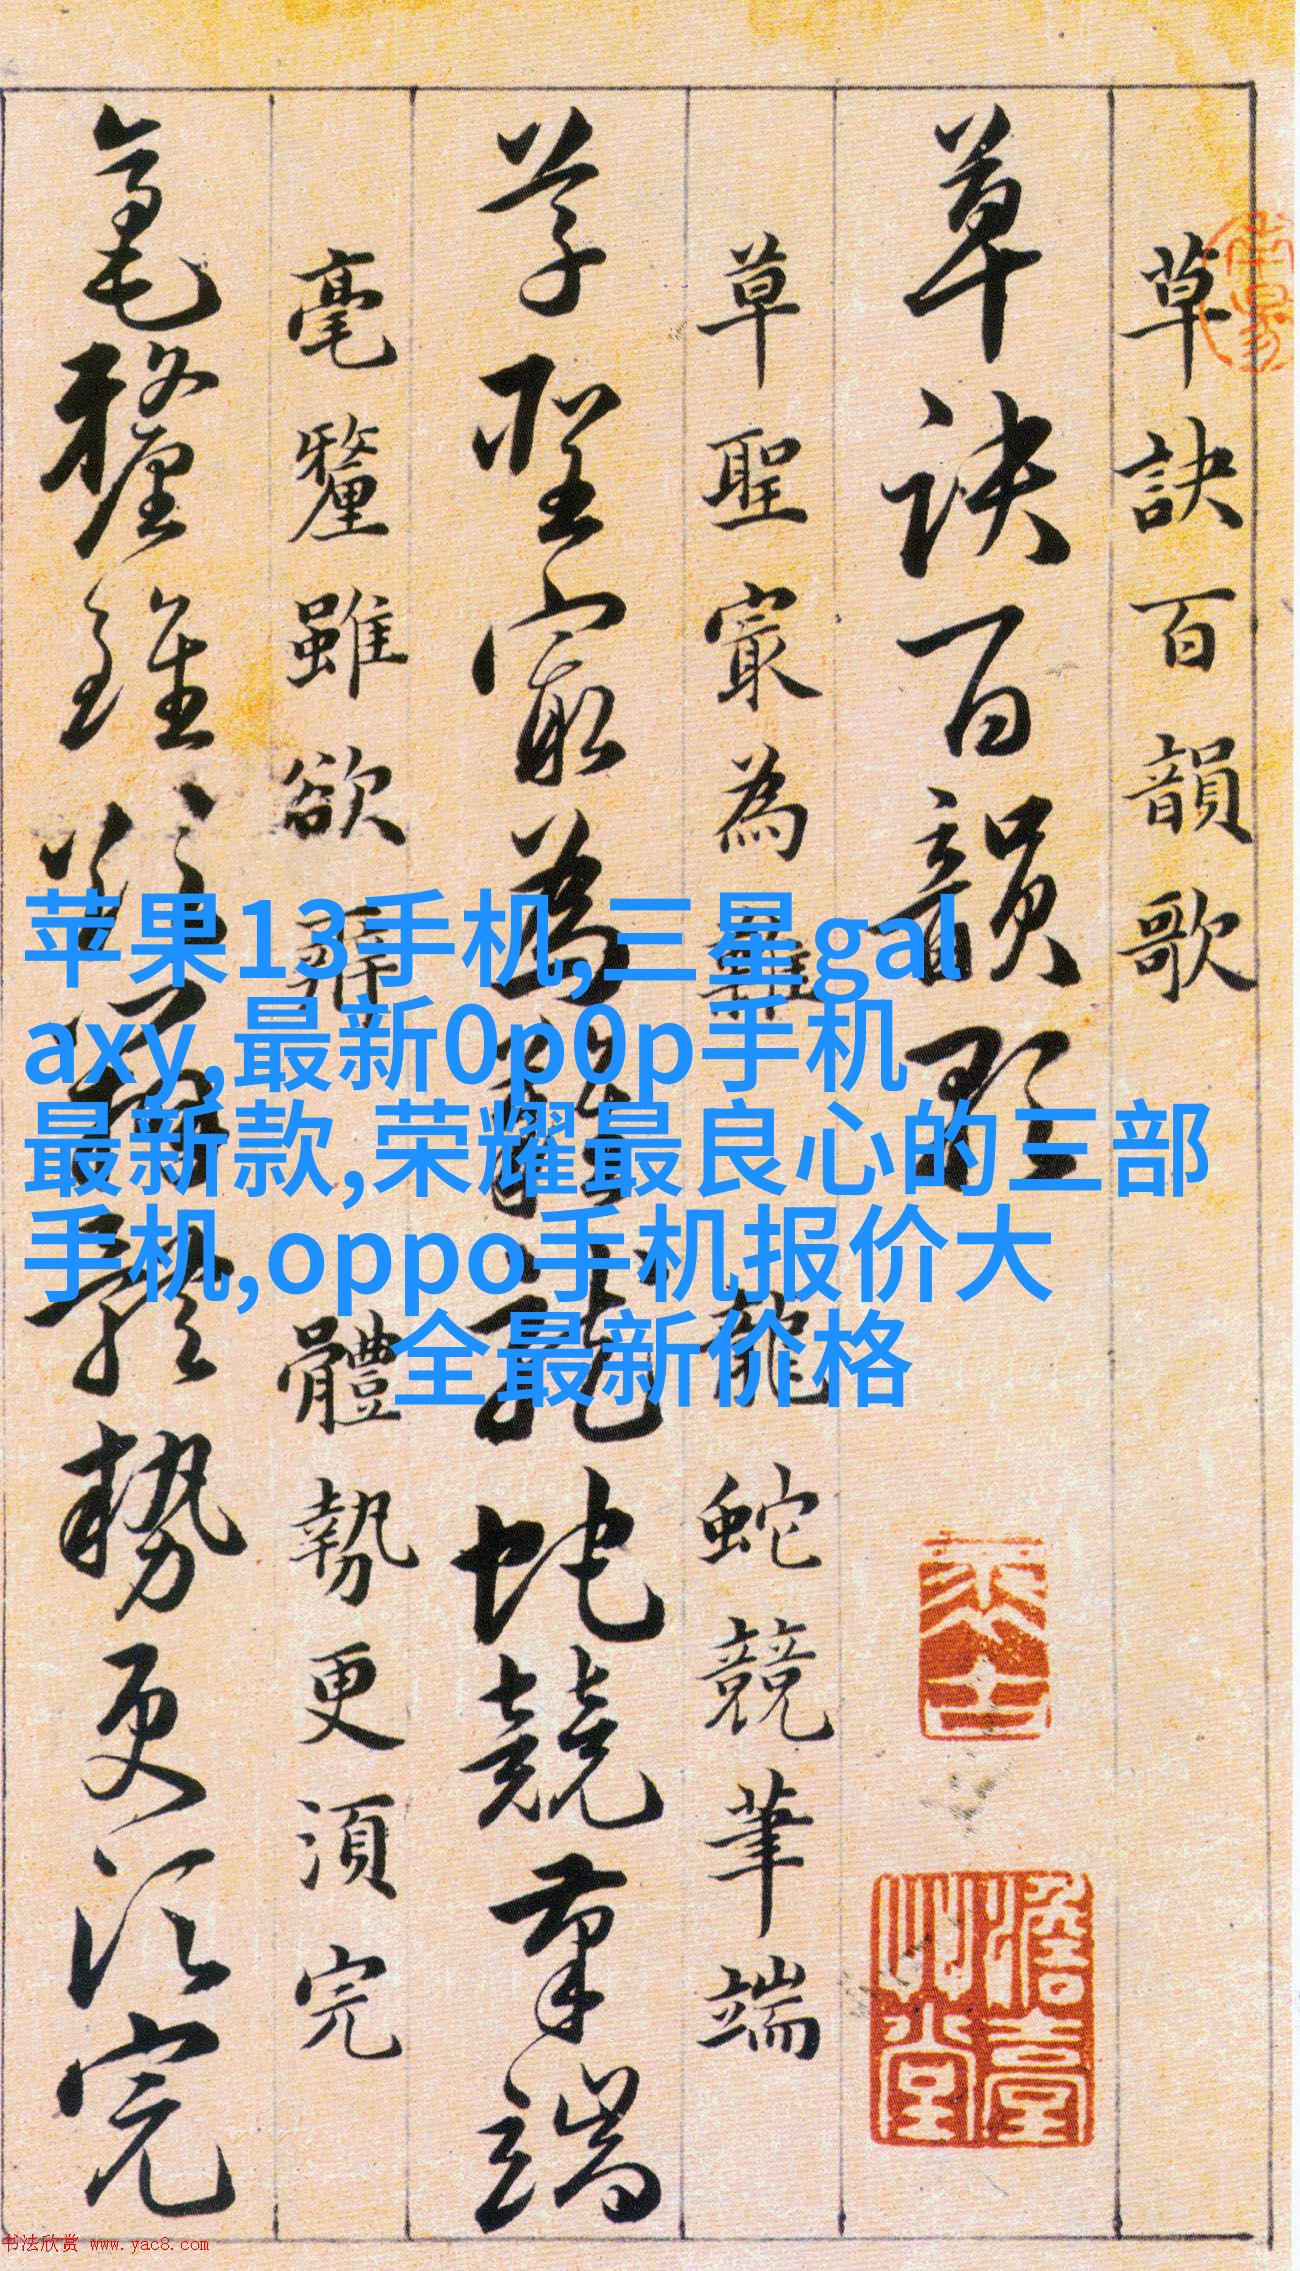 草訣百韻歌
草诀百韵歌
草聖寂為難龍蛇競筆端
草聖寂為難龍蛇競筆端
毫釐雖欲辯體勢更須完
毫釐雖欲辨體勢更須完
苹果13手机,三星gal
axy,最新0p0p手机
最新款,荣耀最良心的三部
手机,oppo手机报价大
全最新价格
书法欣赏 www.yac8.com